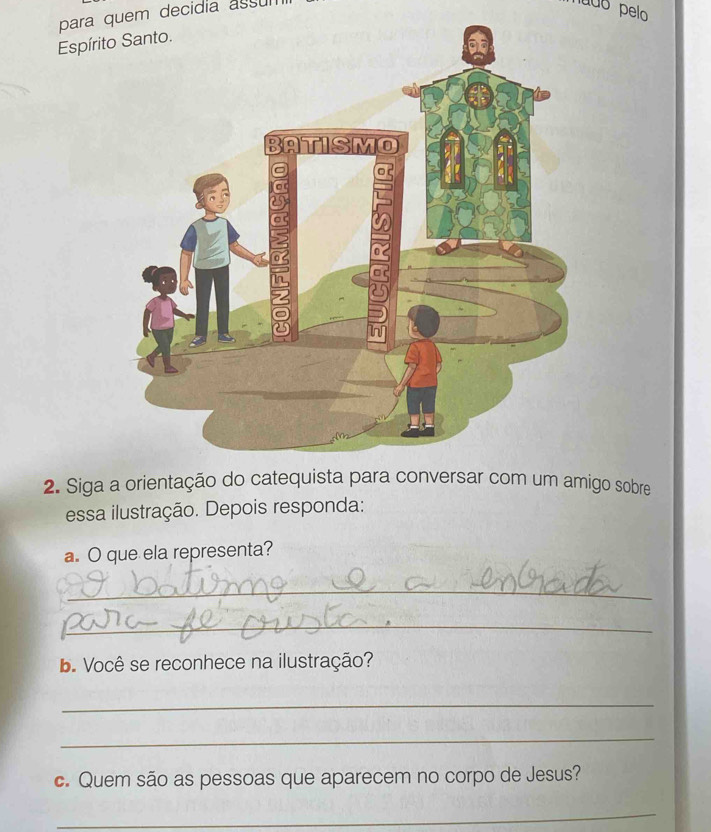 para quem decidia
pelo
Espírito Santo.
BATISMO
CONFIRMAÇÃO
EUCARISTIA
2. Siga a orientação do catequista para conversar com um amigo sobre
essa ilustração. Depois responda:
a. O que ela representa?
batismo e a entrada
para fé crista.
b. Você se reconhece na ilustração?
c. Quem são as pessoas que aparecem no corpo de Jesus?